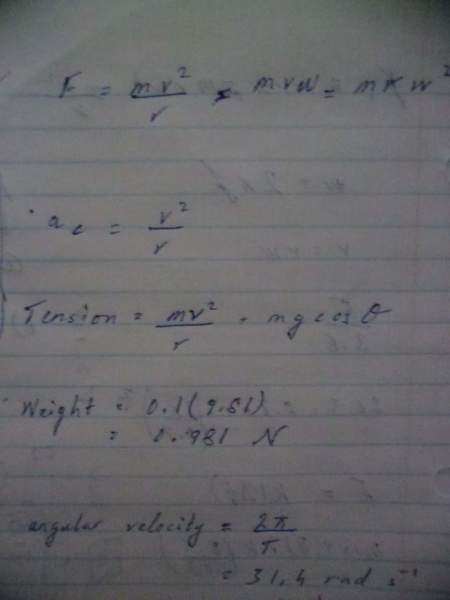 F = mv²/r = mvω = mrω²
a c = v²/r
Tension = mv²/r + mg cos θ
Weight = 0.1(9.81)
= 0.981 N
angular velocity = 2π/T
= 31.4 rad s⁻¹